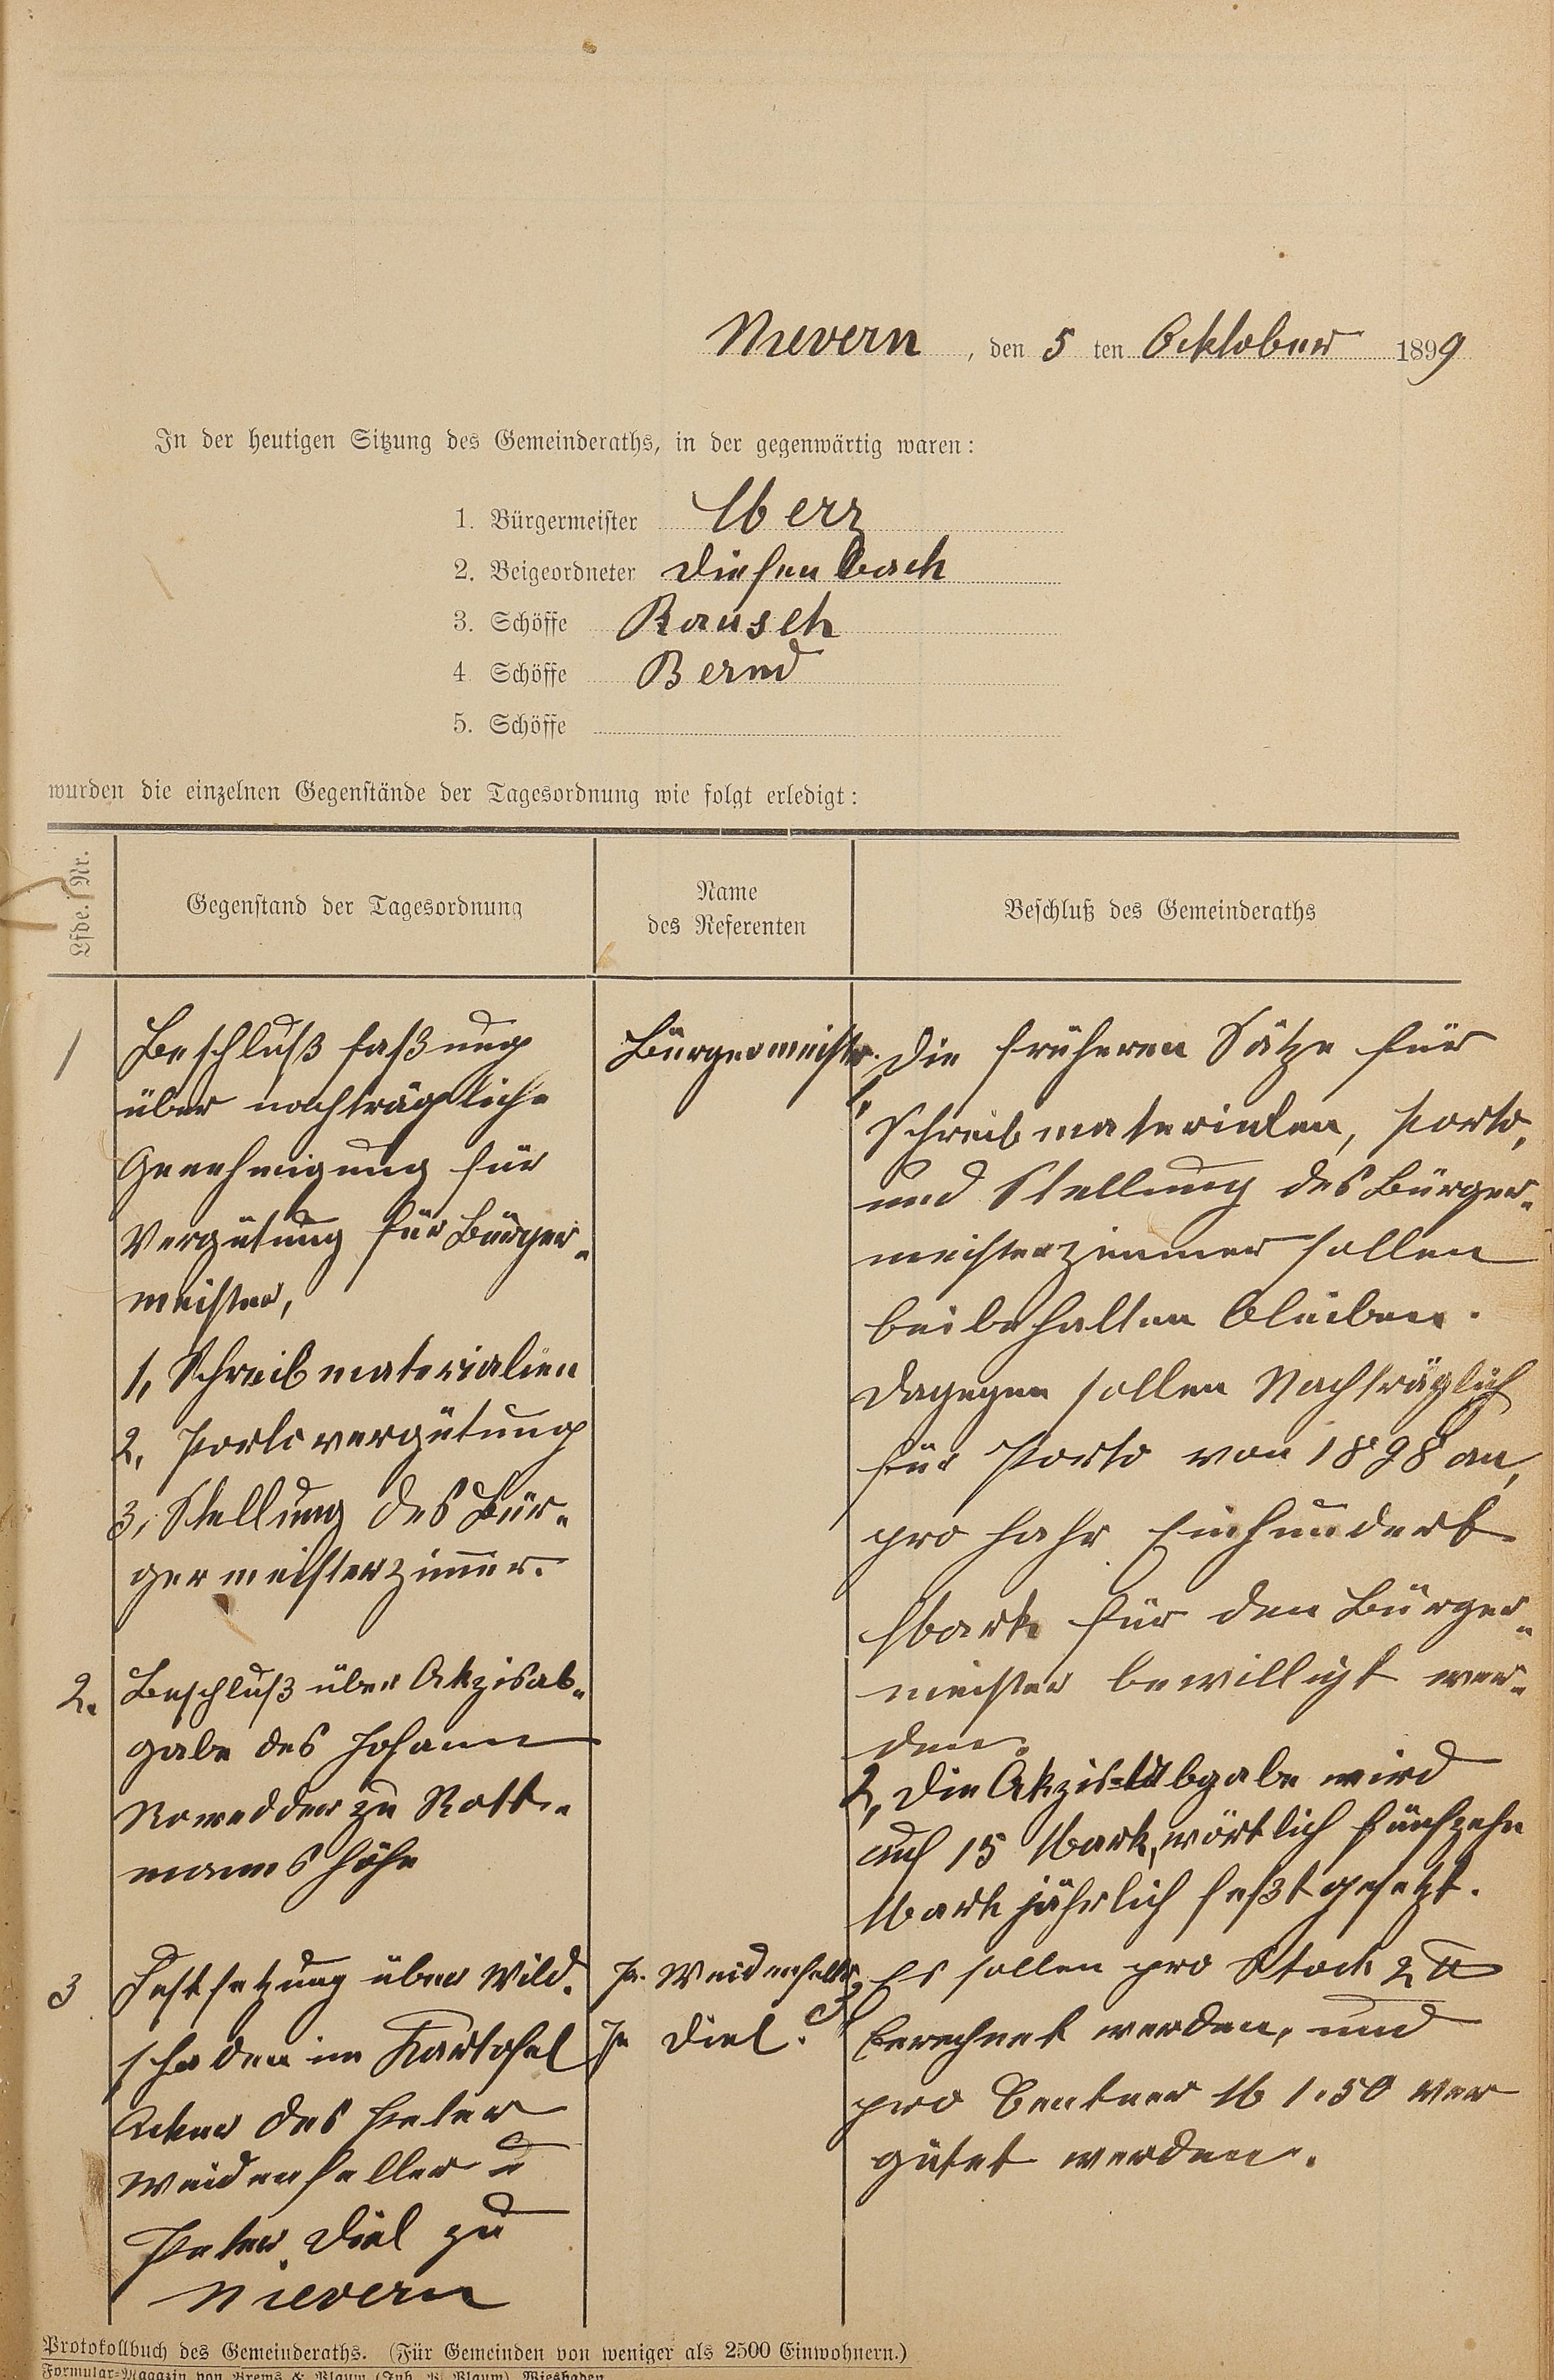 Nievern, den 5 ten Oktober 1899
In der heutigen Sitzung des Gemeinderaths, in der gegenwärtig waren:
1. Bürgermeister Merz
2. Beigeordneter Diefenbach
3. Schöffe Rausch
4. Schöffe Bernd
5. Schöffe
wurden die einzelnen Gegenstände der Tagesordnung wie folgt erledigt:
Lfde. Nr.
Gegenstand der Tagesordnung
Name
des Referenten
Beschluß des Gemeinderaths
1
Beschluß faßung
über nachträgliche
Genehmigung für
Vergütung für Bürger-
meister,
1, Schreibmaterialien
2, Portovergütung
3, Stellung des Bür-
germeisterzimer.
Bürgermeister.
1, Die früheren Sätze für
Schreibmaterialen, Porto,
und Stellung des Bürger-
meisterzimmer sollen
beibehalten bleiben.
Dagegen sollen Nachträglich
für Porto von 1898 an,
pro Jahr Einhundert
Mark für den Bürger-
meister bewilligt wer-
den.
2.
Beschluß über Akzisab-
gabe des Johann
zu Nott-
manns Höhe
2, Die Akzis Abgabe wird
auf 15 Mark, wörtlich fünfzehn
Mark jährlich feßtgesetzt.
3
Festsetzung über Wild-
schaden im Kartofel
Acker des Peter
Weidenfeller u
Peter Diel zu
Nievern
Pe. Weidenfeller
Pe Diel.
3, Es sollen pro Stock 2 ℔
berechnet werden, und
pro Centner M 1.50 ver
gütet werden.
Protokollbuch des Gemeinderaths. (Für Gemeinden von weniger als 2500 Einwohnern.)
Formular-Magazin von Brems & Plaum (Inh. R. Plaum) Wiesbaden